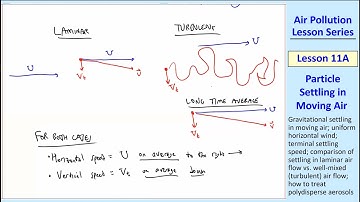 LAMINAR
TURBULENT
U
U
U
Vt
v
Vt
v
LONG TIME AVERAGE
U
Vt
v
FOR BOTH CASES
• Horizontal speed = U on average to the right →
• Vertical speed = Vt on average down
Air Pollution
Lesson Series
Lesson 11A
Particle
Settling in
Moving Air
Gravitational settling
in moving air; uniform
horizontal wind;
terminal settling
speed; comparison of
settling in laminar air
flow vs. well-mixed
(turbulent) air flow;
how to treat
polydisperse aerosols